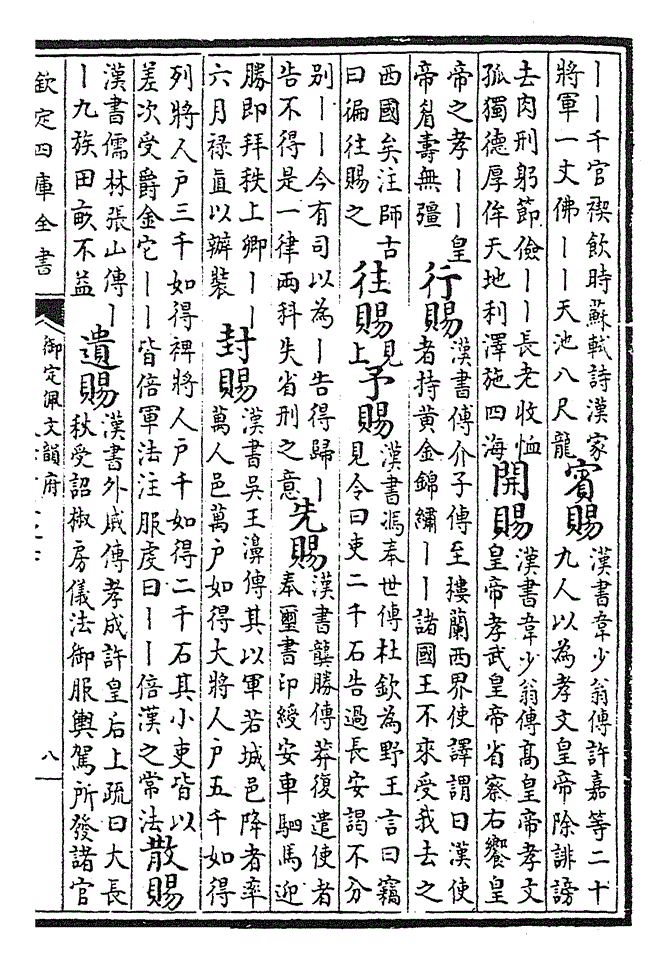 ｜｜千官禊飲時蘇軾詩漢家
將軍一丈佛｜｜天池八尺龍
賓賜
漢書韋少翁傳許嘉等二十
九人以為孝文皇帝除誹謗
去肉刑躬節儉｜｜長老收恤
孤獨德厚侔天地利澤施四海
開賜
漢書韋少翁傳高皇帝孝文
皇帝孝武皇帝省察右饗皇
帝之孝｜｜皇
帝眉壽無彊
行賜
漢書傅介子傳至樓蘭西界使譯謂曰漢使
者持黄金錦繡｜｜諸國王不來受我去之
西國矣注師古
曰徧往賜之
往賜
見上
予賜
漢書馮奉世傳杜欽為野王言曰竊
見令曰吏二千石告過長安謁不分
别｜｜今有司以為｜告得歸｜
告不得是一律兩科失省刑之意
先賜
漢書龔勝傳莽復遣使者
奉璽書印綬安車駟馬迎
勝即拜秩上卿｜｜
六月禄直以辦裝
封賜
漢書吳王濞傳其以軍若城邑降者率
萬人邑萬户如得大將人户五千如得
列將人户三千如得裨將人户千如得二千石其小吏皆以
差次受爵金它｜｜皆倍軍法注服虔曰｜｜倍漢之常法
散賜
漢書儒林張山傳｜
｜九族田畝不益
遺賜
漢書外戚傳孝成許皇后上疏曰大長
秋受詔椒房儀法御服輿駕所發諸官
欽定四庫全書
御定佩文韻府
八